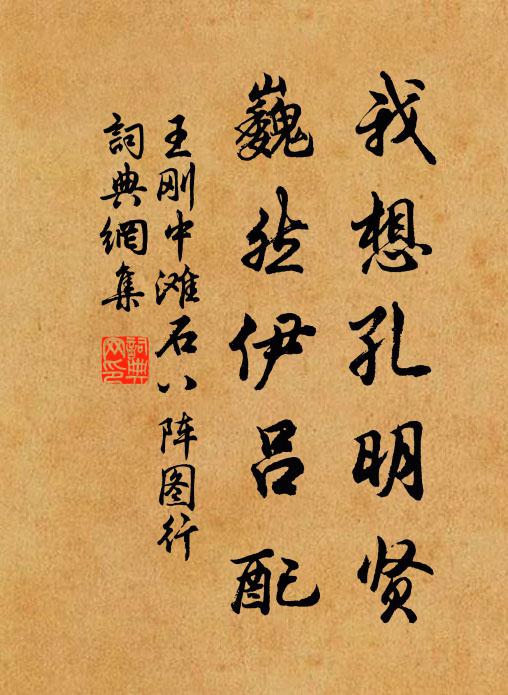 我想孔明贤
巍然伊吕配
王刚中滩石八阵图行
詞典網集
詞典网印